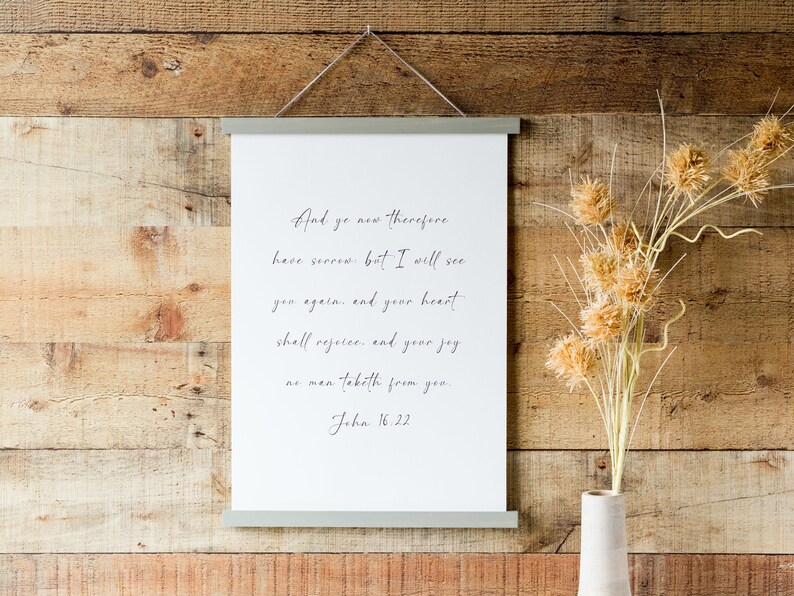 And ye now therefore
have sorrow: but I will see
you again, and your heart
shall rejoice, and your joy
no man taketh from you.
John 16:22